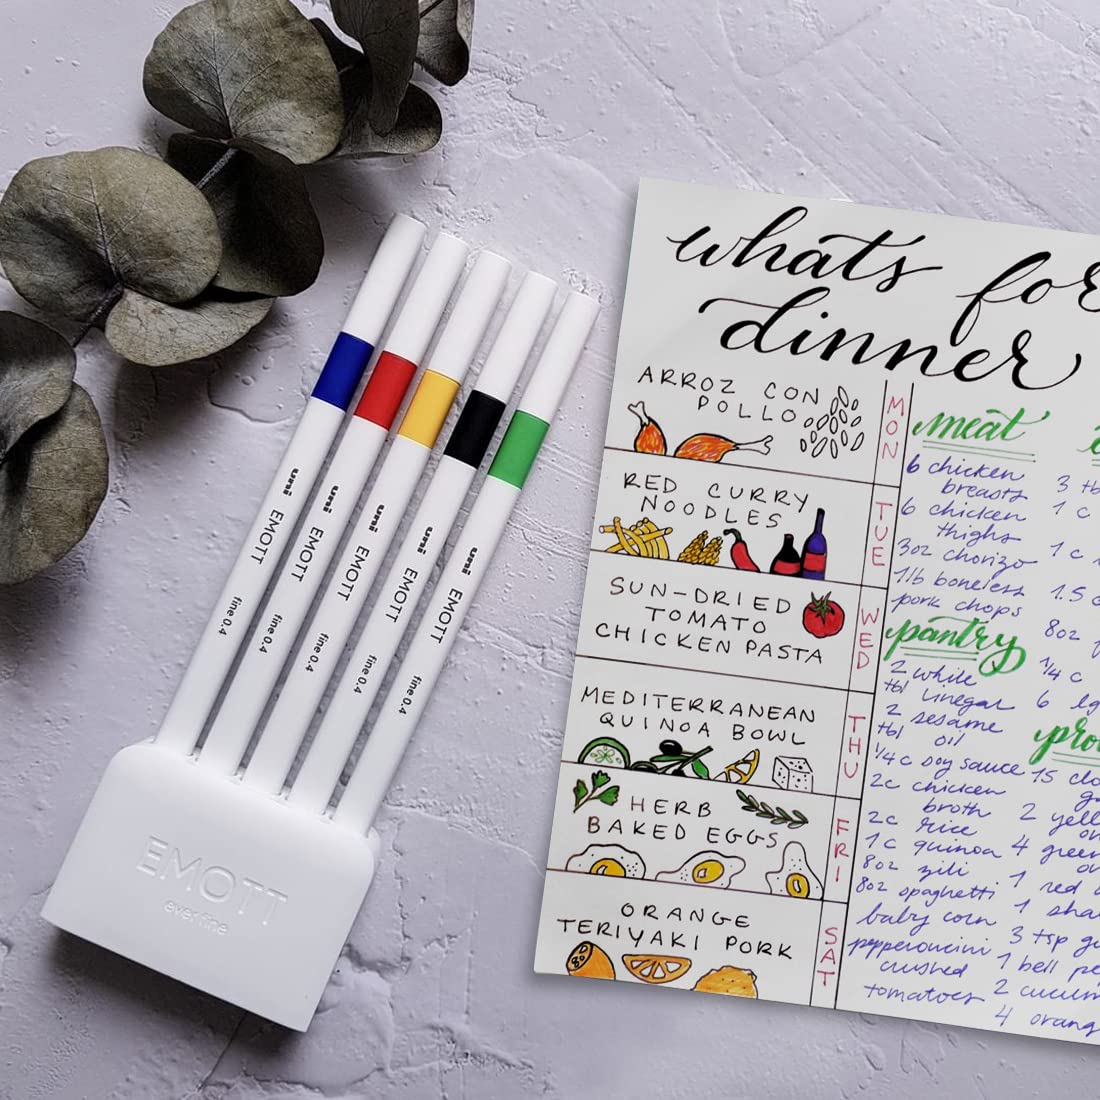 uni EMOTT fine 0.4
uni EMOTT fine 0.4
uni EMOTT fine 0.4
uni EMOTT fine 0.4
uni EMOTT fine 0.4
EMOTT
ever fine
whats for
dinner
ARROZ CON
POLLO
MON
RED CURRY
NOODLES
TUE
SUN-DRIED
TOMATO
CHICKEN PASTA
WED
MEDITERRANEAN
QUINOA BOWL
THU
HERB
BAKED EGGS
FRI
ORANGE
TERIYAKI PORK
SAT
meat
6 chicken
breasts
6 chicken
thighs
3oz chorizo
1lb boneless
pork chops
pantry
2 white
tbl vinegar
2 sesame
tbl oil
1/4 c soy sauce
2c chicken
broth
2c rice
1c quinoa
8oz ziti
8oz spaghetti
baby corn
pepperoncini
crushed
tomatoes
3
1 c
1 c
1.5 c
8oz
1/4 c
6
15
2
4
1 red
1
3 tsp
1 bell
2
4